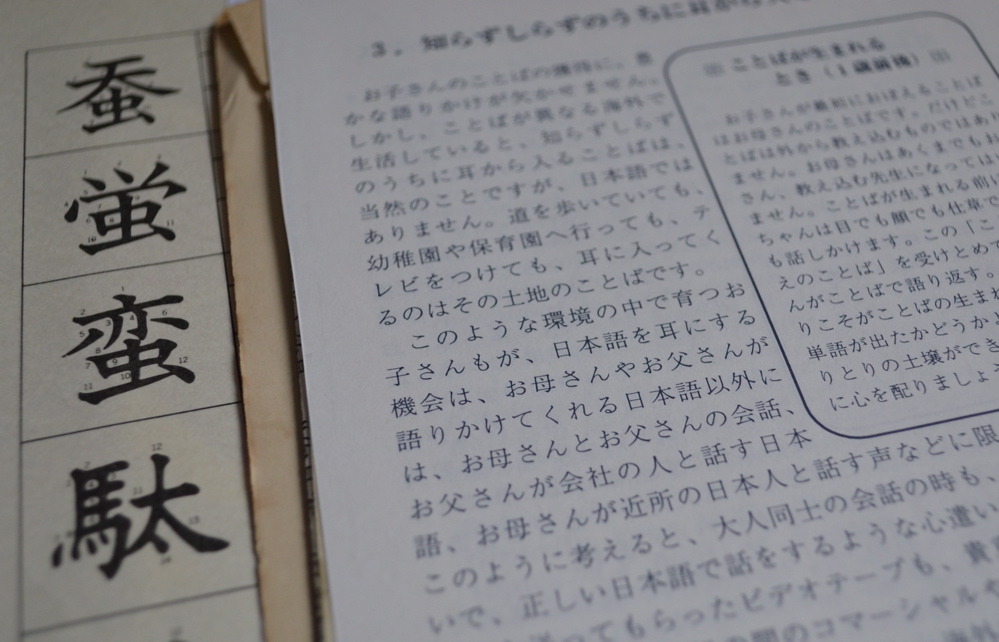 蚕
蛍
蛮
駄
3．知らずしらずのうちに耳から
お子さんのことばの獲得に、豊
かな語りかけが欠かせません。
しかし、ことばが異なる海外で
生活していると、知らずしらず
のうちに耳から入ることばは、
当然のことですが、日本語では
ありません。道を歩いていても、
幼稚園や保育園へ行っても、テ
レビをつけても、耳に入ってく
るのはその土地のことばです。
このような環境の中で育つお
子さんもが、日本語を耳にする
機会は、お母さんやお父さんが
語りかけてくれる日本語以外に
は、お母さんとお父さんの会話、
お父さんが会社の人と話す日本
語、お母さんが近所の日本人と話す声などに限
このように考えると、大人同士の会話の時も、
いで、正しい日本語で話をするような心遣い
てもらったビデオテープも、貴
間のコマーシャルや
ことばが生まれる
とき（1歳前後）
お子さんが最初におぼえることば
はお母さんのことばです。だけどこ
とばは外から教え込むものではあり
ません。お母さんはあくまでもお
さん、教え込む先生になっては
ません。ことばが生まれる前
ちゃんは目でも顔でも仕草で
も話しかけます。この「こ
えのことば」を受けとめて
んがことばで語り返す。
りこそがことばの生まれ
単語が出たかどうか
りとりの土壌ができ
に心を配りましょ